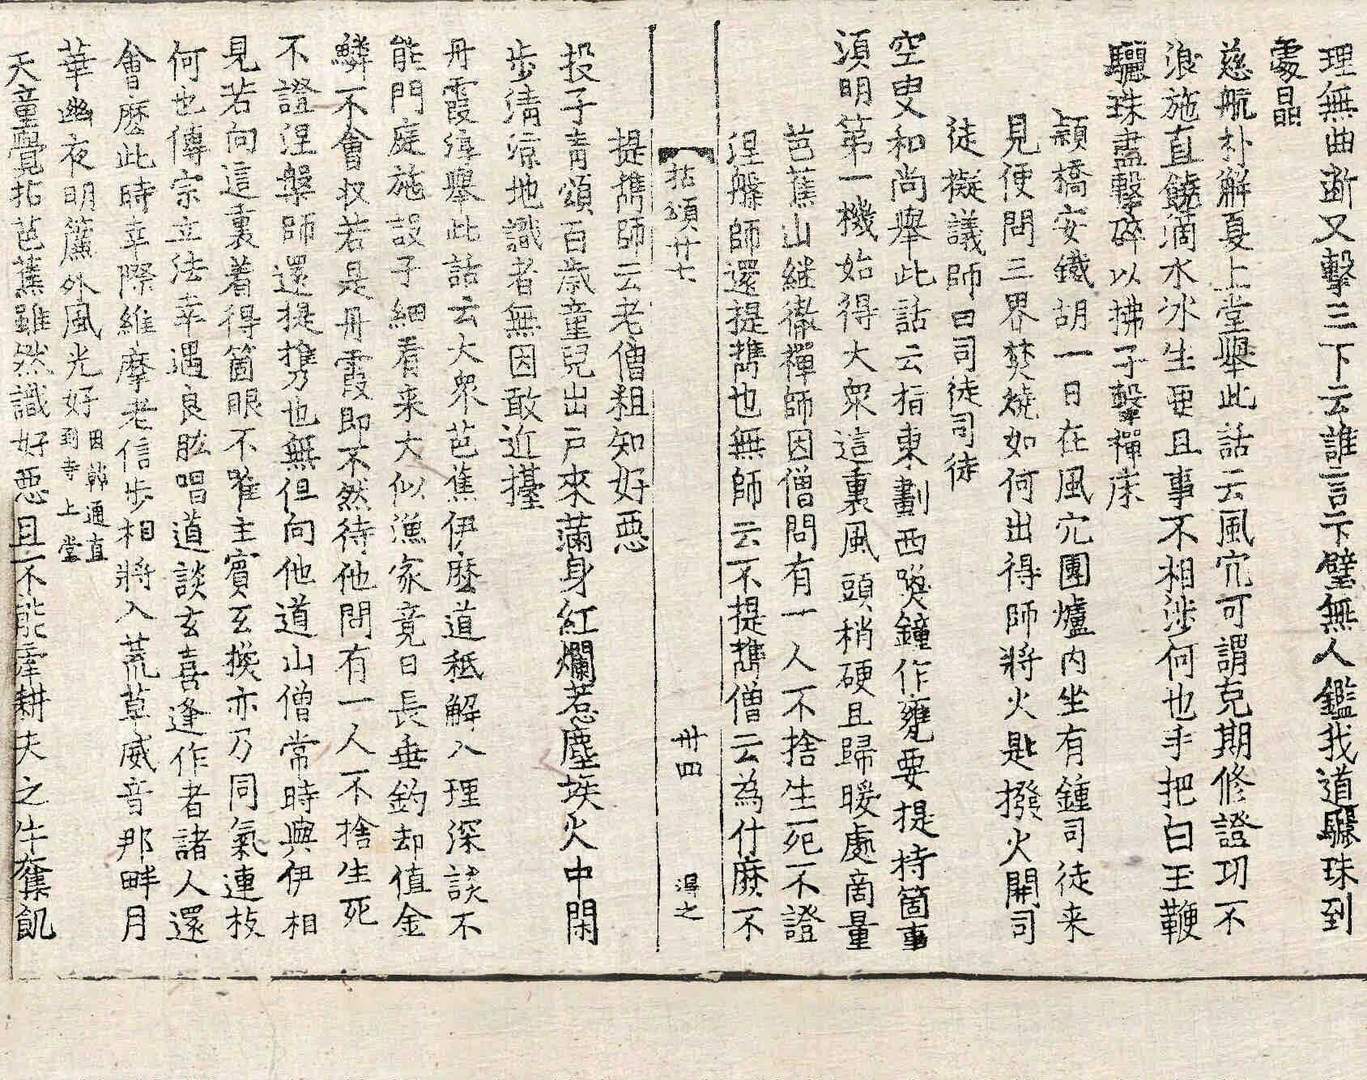 理無曲断又擊三下云誰言卞璧無人鑑我道驪珠到
處晶
慈航朴解夏上堂舉此話云風穴可謂克期修證功不
浪施直饒滴水冰生要且事不相涉何也手把白玉鞭
驪珠盡擊碎以拂子擊禪床
頴橋安鐵胡一日在風穴圍爐内坐有鍾司徒来
見便問三界焚燒如何出得師將火匙撥火開司
徒擬議師曰司徒司徒
空叟和尚舉此話云指東劃西喚鐘作甕要提持箇事
須明第一機始得大衆這裏風頭稍硬且歸暖處啇量
芭蕉山继徹禪師因僧問有一人不捨生死不證
涅槃師還提㩗也無師云不提㩗僧云為什麽不
拈頌廿七 卅四 得之
提㩗師云老僧粗知好惡
投子青頌百歳童兒出戶來滿身紅爛惹塵埃火中閑
步淸涼地識者無因敢近擡
丹霞淳舉此話云大衆芭蕉伊麽道秪解入理深談不
能門庭施設子細看来大似漁家竟日長垂釣却值金
鱗不會収若是丹霞即不然待他問有一人不捨生死
不證涅槃師還提携也無但向他道山僧常時與伊相
見若向這裏着得箇眼不唯主賓互換亦乃同氣連枝
何也傳宗立法幸遇良肱唱道談玄喜逢作者諸人還
會麽此時幸際維摩老信步相將入荒草威音那畔月
華幽夜明簾外風光好因韓通直到寺上堂
天童覺拈芭蕉雖然識好惡且不能牽耕夫之牛奪飢